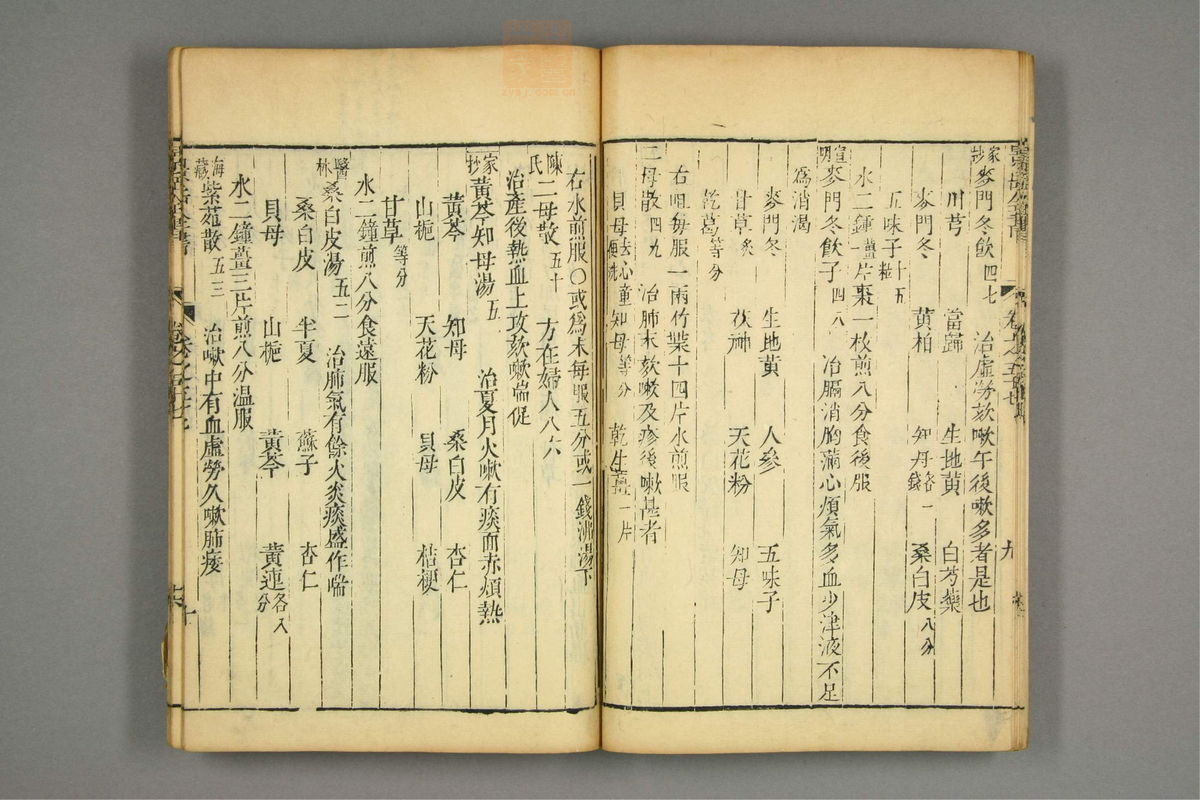 家抄麥門冬飲四七　治虛勞欬嗽午後嗽多者是也
川芎　當歸　生地黃　白芍藥
麥門冬　黃柏　知母各一錢　桑白皮八分
五味子十五粒
水二鐘薑一片棗一枚煎八分食後服
宣明麥門冬飲子四八　治膈消胸滿心煩氣多血少津液不足
爲消渴
麥門冬　生地黃　人參　五味子
甘草炙　茯神　天花粉　知母
乾葛等分
右㕮咀每服一兩竹葉十四片水煎服
二母散四九　治肺末欬嗽及疹後嗽甚者
貝母去心童便洗　知母等分　乾生薑一片
右水煎服○或爲末每服五分或一錢沸湯下
陳氏二母散五十　方在婦人八六
治產後熱血上攻欬嗽喘促
家抄黃芩知母湯五一　治夏月火嗽有痰面赤煩熱
黃芩　知母　桑白皮　杏仁
山梔　天花粉　貝母　桔梗
甘草等分
水二鐘煎八分食遠服
醫林桑白皮湯五二　治肺氣有餘火炎痰盛作喘
桑白皮　半夏　蘇子　杏仁
貝母　山梔　黃芩　黃連各八分
水二鐘薑三片煎八分溫服
海藏紫菀散五三　治嗽中有血虛勞久嗽肺痿